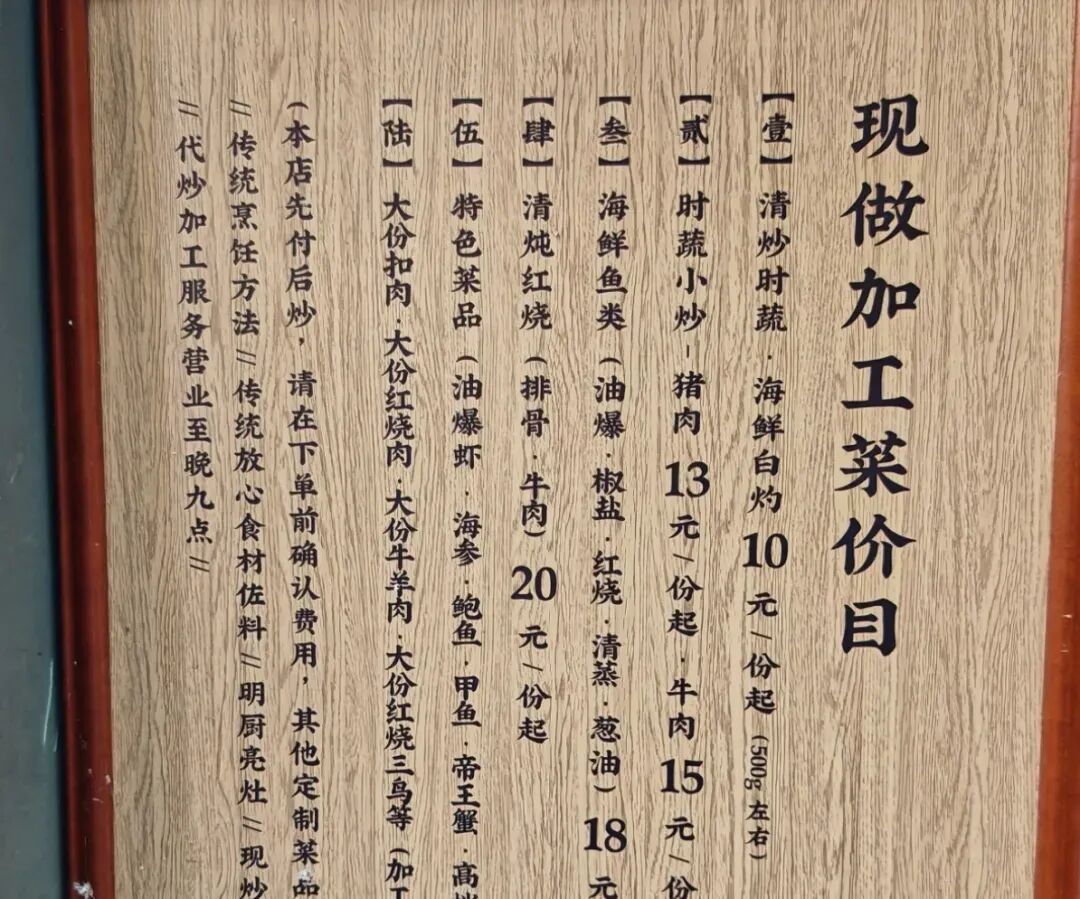 现做加工菜价目
【壹】清炒时蔬·海鲜白灼10元/份起(500g左右)
【贰】时蔬小炒-猪肉13元/份起·牛肉15元/份
【叁】海鲜鱼类(油爆·椒盐·红烧·清蒸·葱油)18元
【肆】清炖红烧(排骨·牛肉)20元/份起
【伍】特色菜品(油爆虾·海参·鲍鱼·甲鱼·帝王蟹·高
【陆】大份扣肉·大份红烧肉·大份牛羊肉·大份红烧三鸟等(加工
(本店先付后炒,请在下单前确认费用,其他定制菜品
//传统烹饪方法//传统放心食材佐料//明厨亮灶//现炒
//代炒加工服务营业至晚九点//